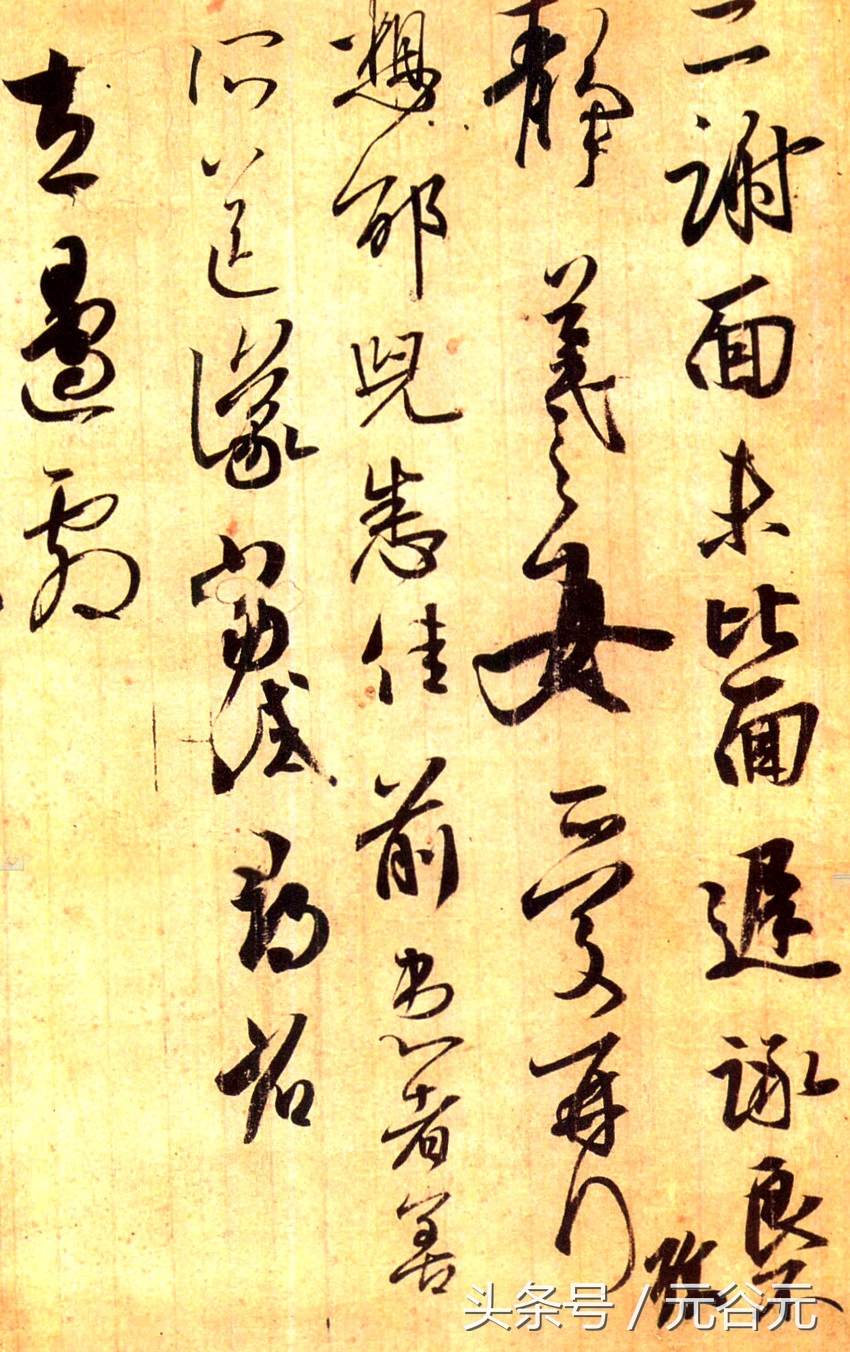 二謝面未比面遲詠良不
靜羲之女愛再拜
想邰兒悉佳前患者善
所送議當試尋省
左邊劇
頭条号 / 元谷元